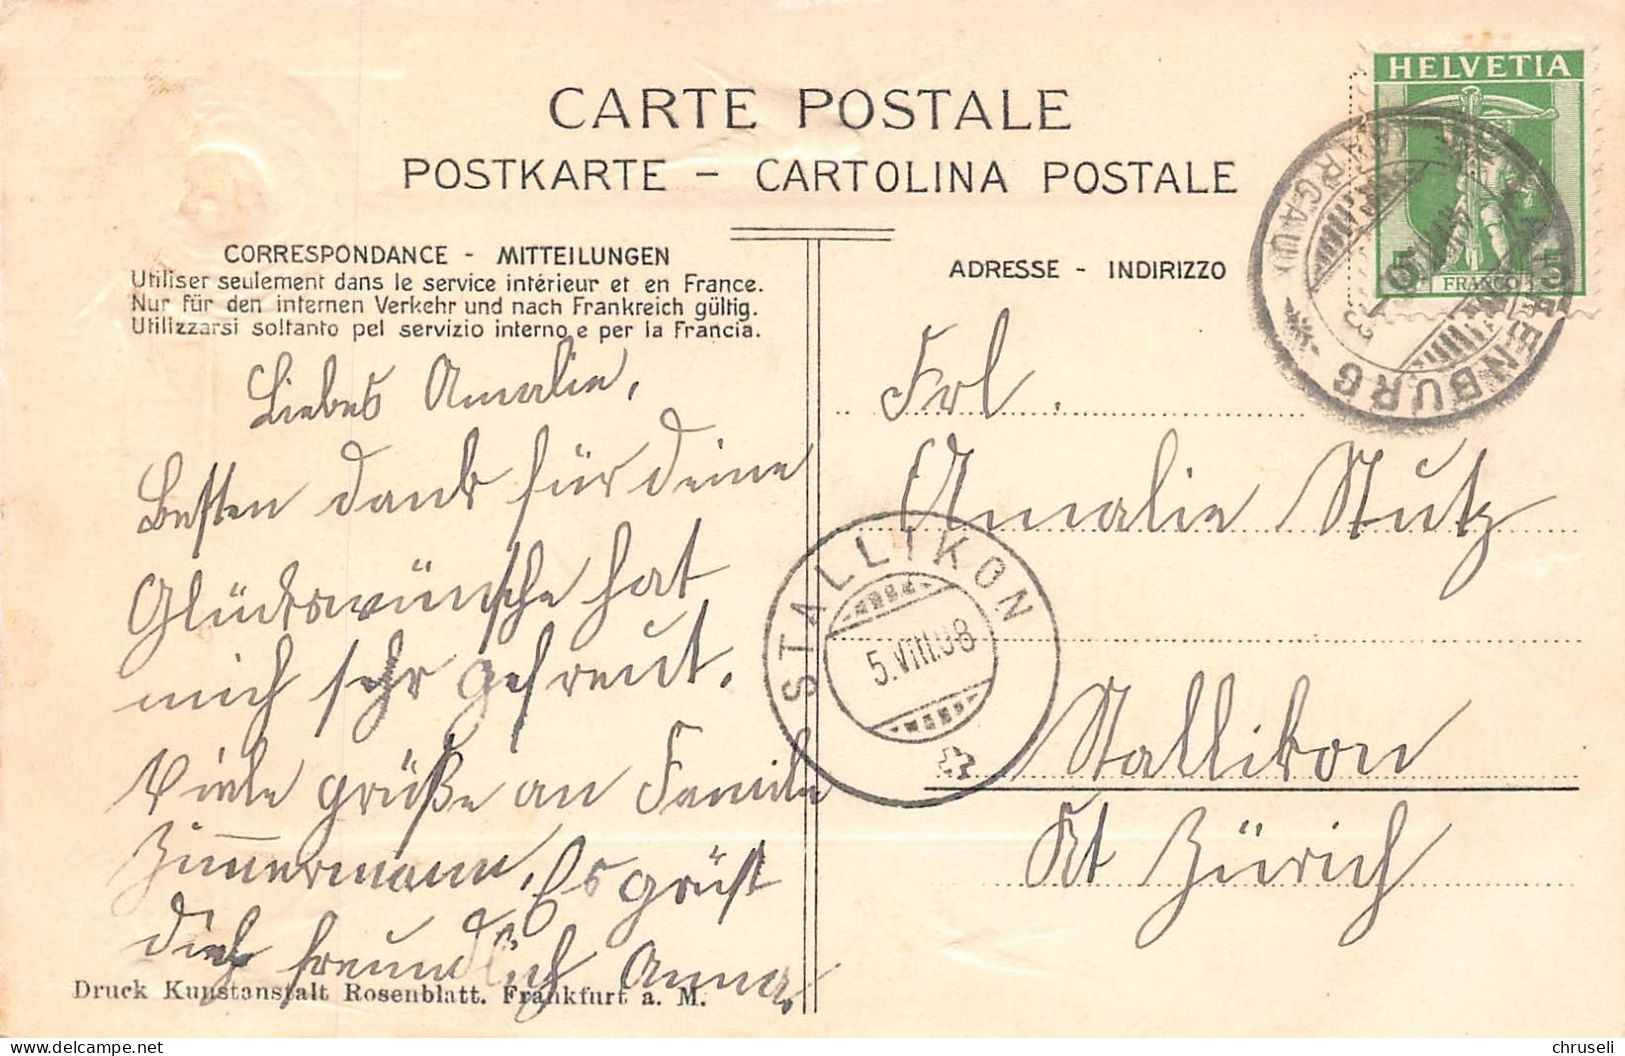 CARTE POSTALE
POSTKARTE - CARTOLINA POSTALE
CORRESPONDANCE - MITTEILUNGEN
Utiliser seulement dans le service intérieur et en France.
Nur für den internen Verkehr und nach Frankreich gültig.
Utilizzarsi soltanto pel servizio interno e per la Francia.
Liebes Amalie,
Besten Dank für deine
Glückswünsche hat
mich sehr gefreut.
Viele grüße an Familie
Zimmermann. Es grüßt
dich freundlich Anna.
Druck Kunstanstalt Rosenblatt. Frankfurt a. M.
ADRESSE - INDIRIZZO
HELVETIA
5 5
FRANCO
KAISTENBURG
(AARGAU)
Frl.
Amalie Stutz
STALLIKON
5.VIII.08
Stallikon
Kt Zürich
chruseli